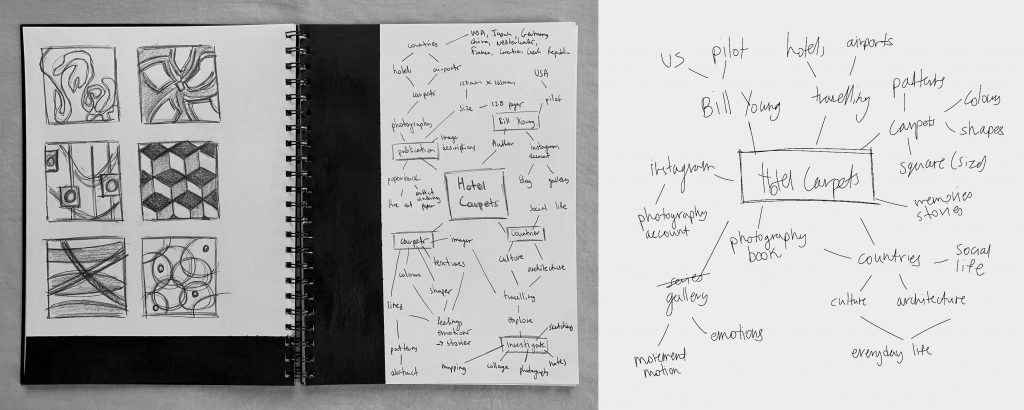 USA, Japan, Germany
China, Netherlands,
countries
hotels
airports
carpets
127mm x 165mm
USA
size
128 pages
pilot
Bill Young
photography
image
descriptions
publication
Author
instagram
account
paperback
blog
gallery
Hotel
Carpets
social life
countries
carpets
images
colours
textures
culture
architecture
shapes
lines
travelling
feelings
emotions
→ stories
explore
sketching
patterns
investigate
abstract
mapping
collage
photographs
notes
US
pilot
hotels
airports
patterns
Bill Young
travelling
colours
carpets
shapes
square (size)
instagram
Hotel Carpets
memories
stories
photography
account
photography
book
countries
social
life
gallery
culture
architecture
emotions
everyday life
movement
motion